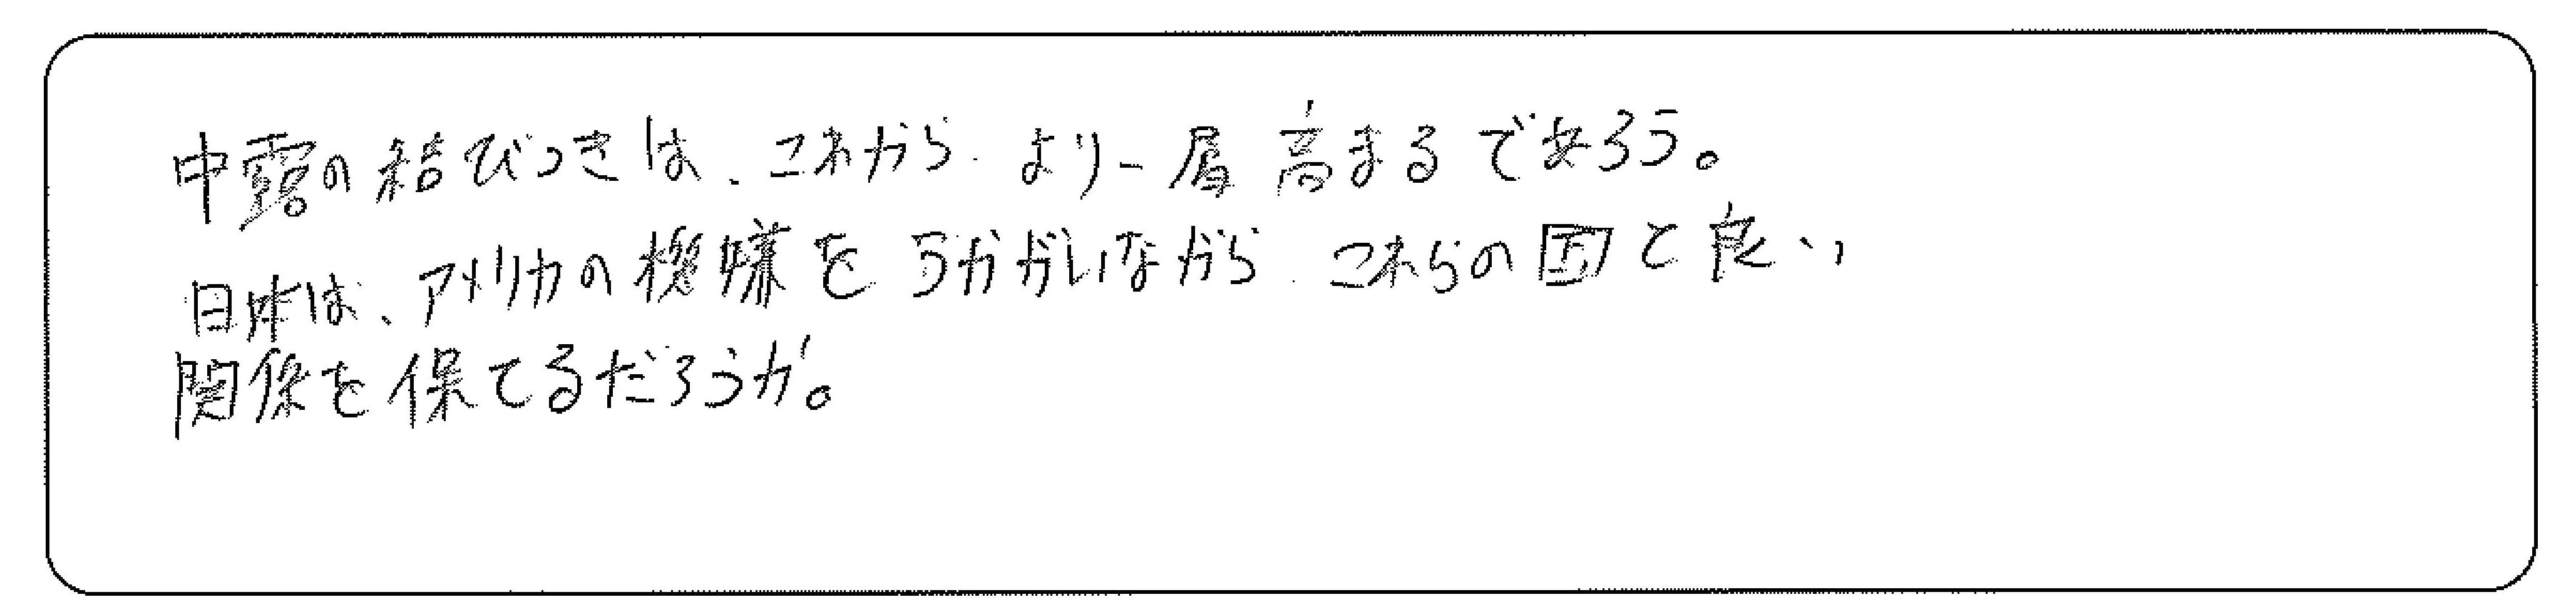 中露の結びつきは、これから より一層 高まるであろう。
日本は、アメリカの機嫌を うかがいながら これらの国と良い
関係を保てるだろうか。